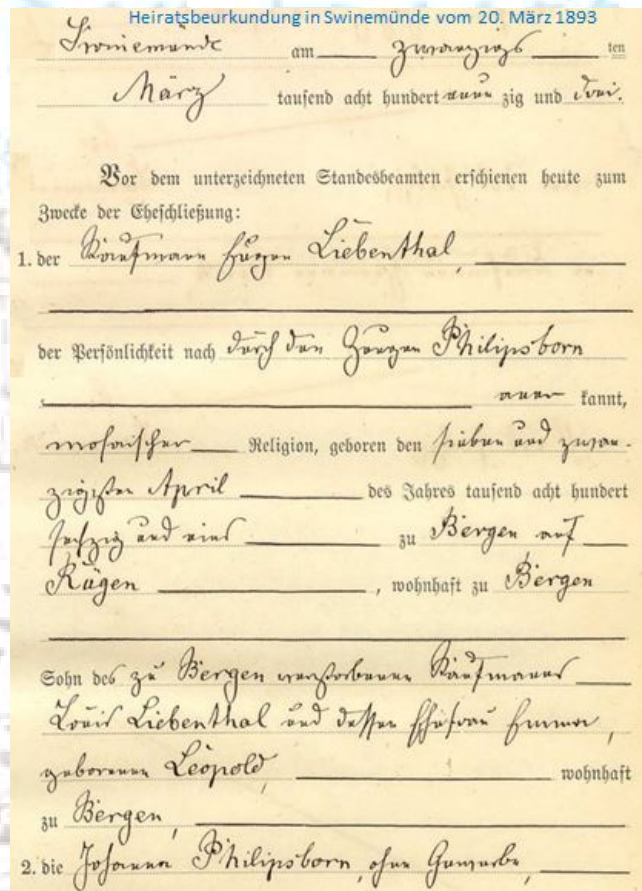 Heiratsbeurkundung in Swinemünde vom 20. März 1893
Swinemünde am zwanzigs ten
März tausend acht hundert neun zig und drei.
Vor dem unterzeichneten Standesbeamten erschienen heute zum
Zwecke der Eheschließung:
1. der Kaufmann Eugen Liebenthal,
der Persönlichkeit nach durch den Zeugen Philipsborn
aner kannt,
mosaischer Religion, geboren den sieben und zwan-
zigsten April des Jahres tausend acht hundert
sechzig und eins zu Bergen auf
Rügen, wohnhaft zu Bergen
Sohn des zu Bergen verstorbenen Kaufmanns
Louis Liebenthal und dessen Ehefrau Emma,
geborenen Leopold, wohnhaft
zu Bergen,
2. die Johanna Philipsborn, ohne Gewerbe,